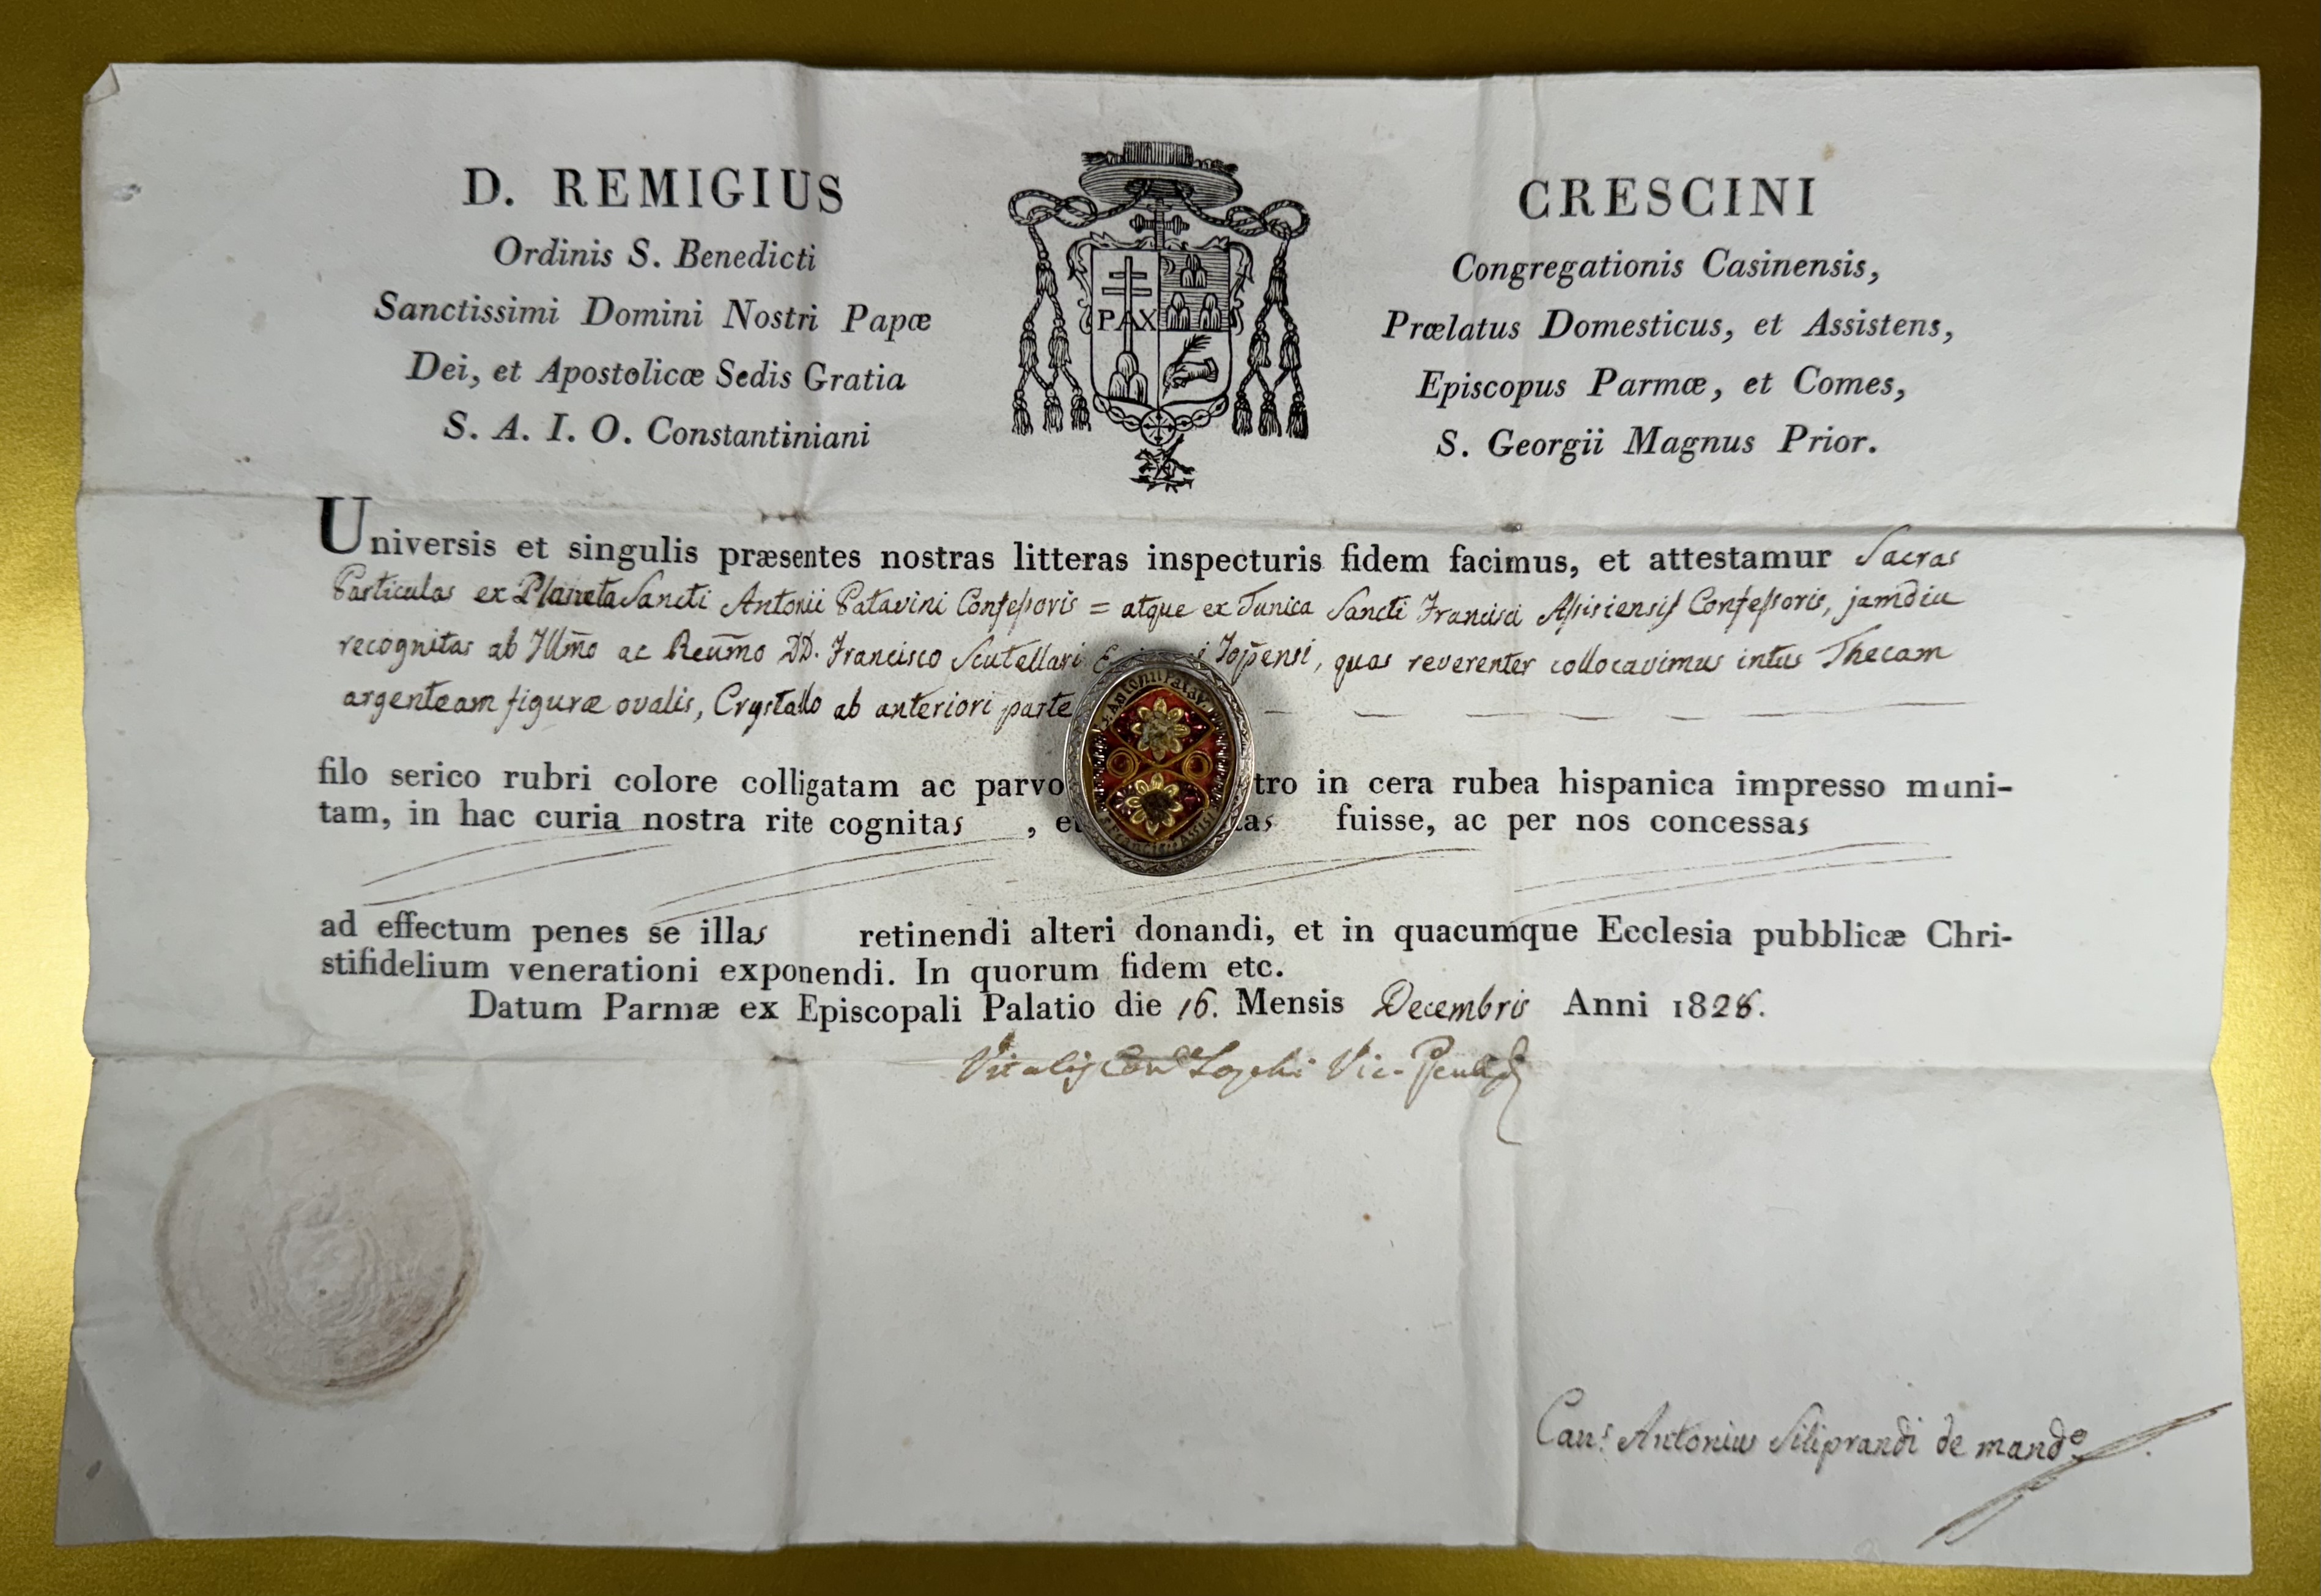 D. REMIGIUS CRESCINI
Ordinis S. Benedicti Congregationis Casinensis,
Sanctissimi Domini Nostri Papæ Prælatus Domesticus, et Assistens,
Dei, et Apostolicæ Sedis Gratia Episcopus Parmæ, et Comes,
S. A. I. O. Constantiniani S. Georgii Magnus Prior.
PAX
Universis et singulis præsentes nostras litteras inspecturis fidem facimus, et attestamur Sacras
Particulas ex Planeta Sancti Antonii Patavini Confessoris = atque ex Tunica Sancti Francisci Assisiensis Confessoris, jamdiu
recognitas ab Illm̃o ac Reum̃o DD. Francisco Scutellari Jop̃ensi, quas reverenter collocavimus intus Thecam
argenteam figuræ ovalis, Crystallo ab anteriori parte
S. Antonii Patav.
filo serico rubri colore colligatam ac parvo tro in cera rubea hispanica impresso muni-
tam, in hac curia nostra rite cognitas , et tas fuisse, ac per nos concessas
S. Francisci Assisi
ad effectum penes se illas retinendi alteri donandi, et in quacumque Ecclesia pubblicæ Chri-
stifidelium venerationi exponendi. In quorum fidem etc.
Datum Parmæ ex Episcopali Palatio die 16. Mensis Decembris Anni 1828.
Vitalis Loschi Vic.
Can.s Antonius Siliprandi de mand.o